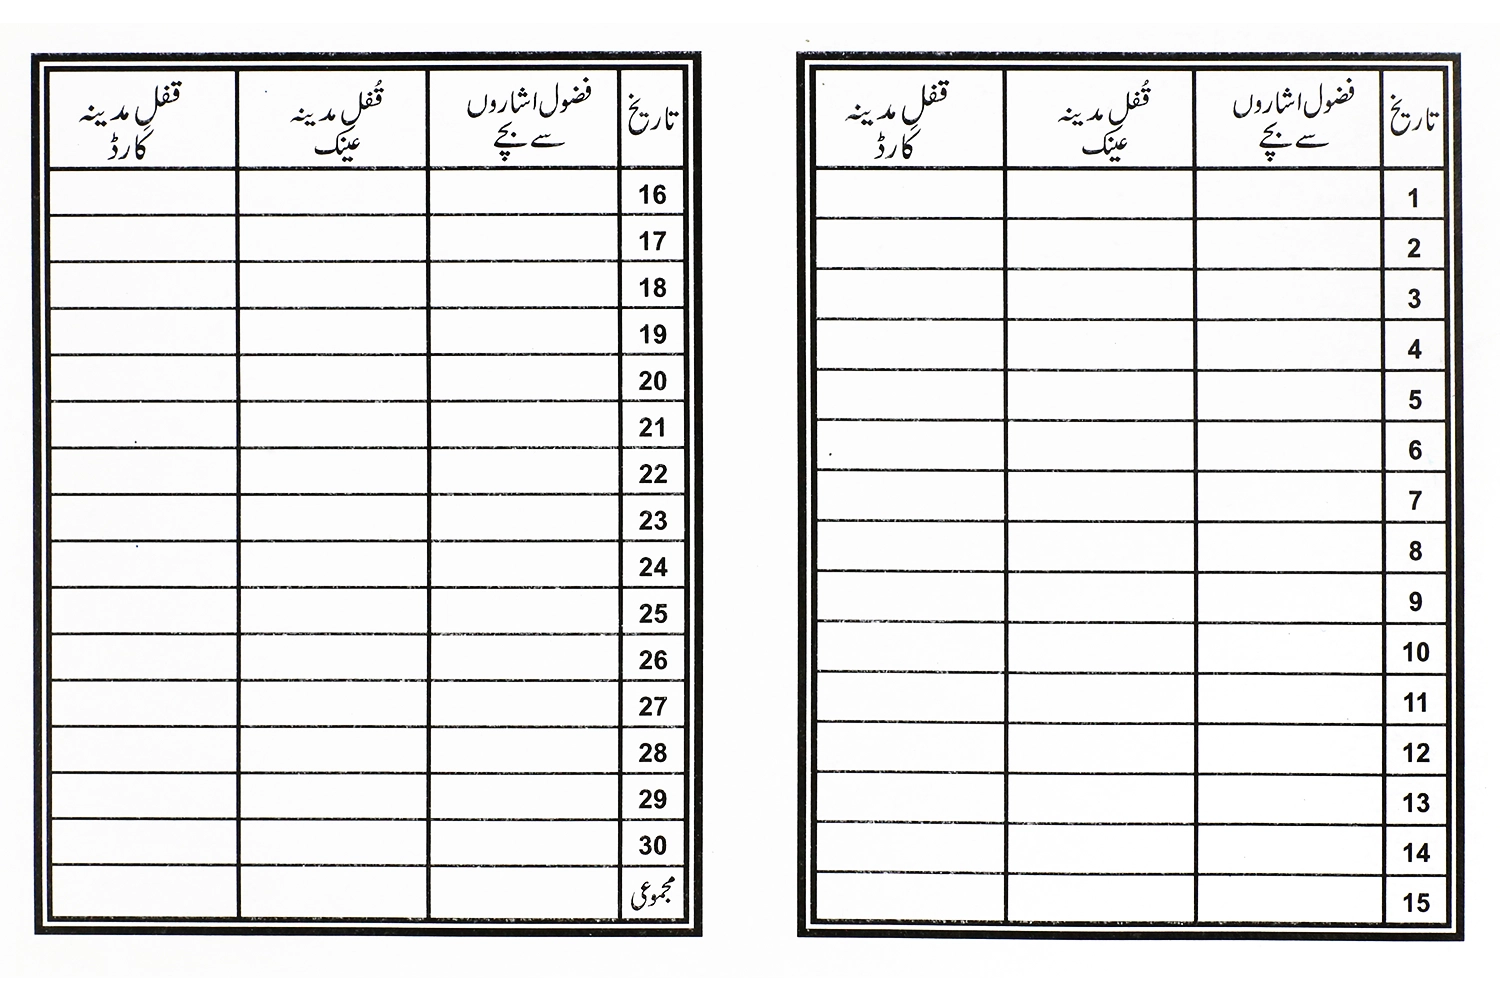 تاریخ فضول اشاروں سے بچے قُفلِ مدینہ عینک قفلِ مدینہ کارڈ
1
2
3
4
5
6
7
8
9
10
11
12
13
14
15
تاریخ فضول اشاروں سے بچے قُفلِ مدینہ عینک قفلِ مدینہ کارڈ
16
17
18
19
20
21
22
23
24
25
26
27
28
29
30
مجموعی